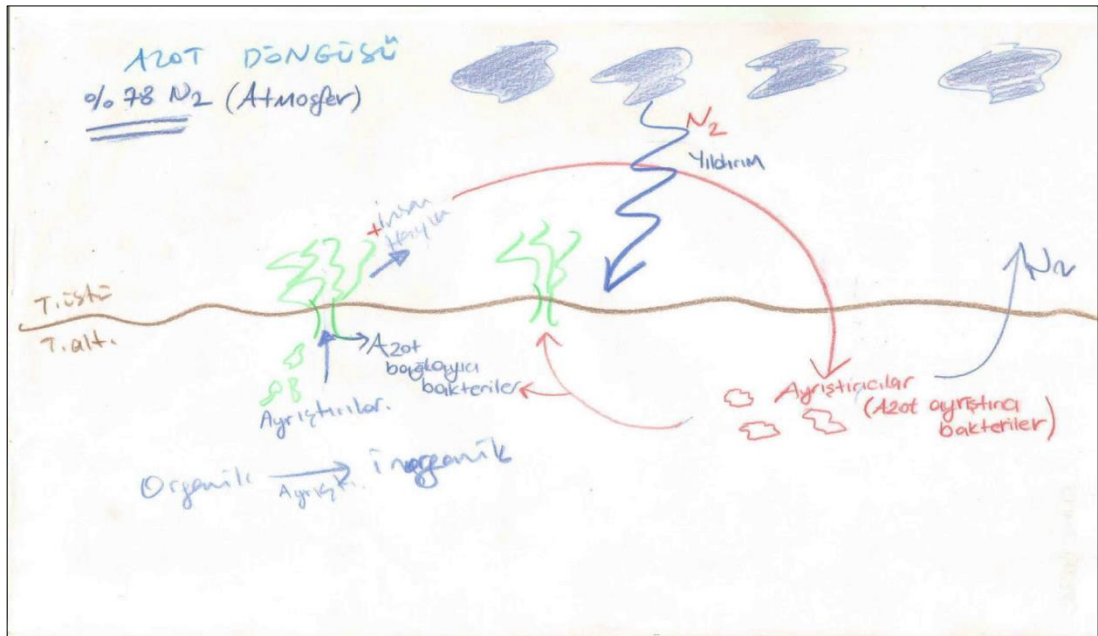 AZOT DÖNGÜSÜ
% 78 N2 (Atmosfer)
N2
Yıldırım
+insan
Hayvan
N2
T. üstü
T. alt.
Azot
bağlayıcı
bakteriler
Ayrıştırıcılar.
Ayrıştırıcılar
(Azot ayrıştırıcı
bakteriler)
Organik
Ayrıştı.
inorganik